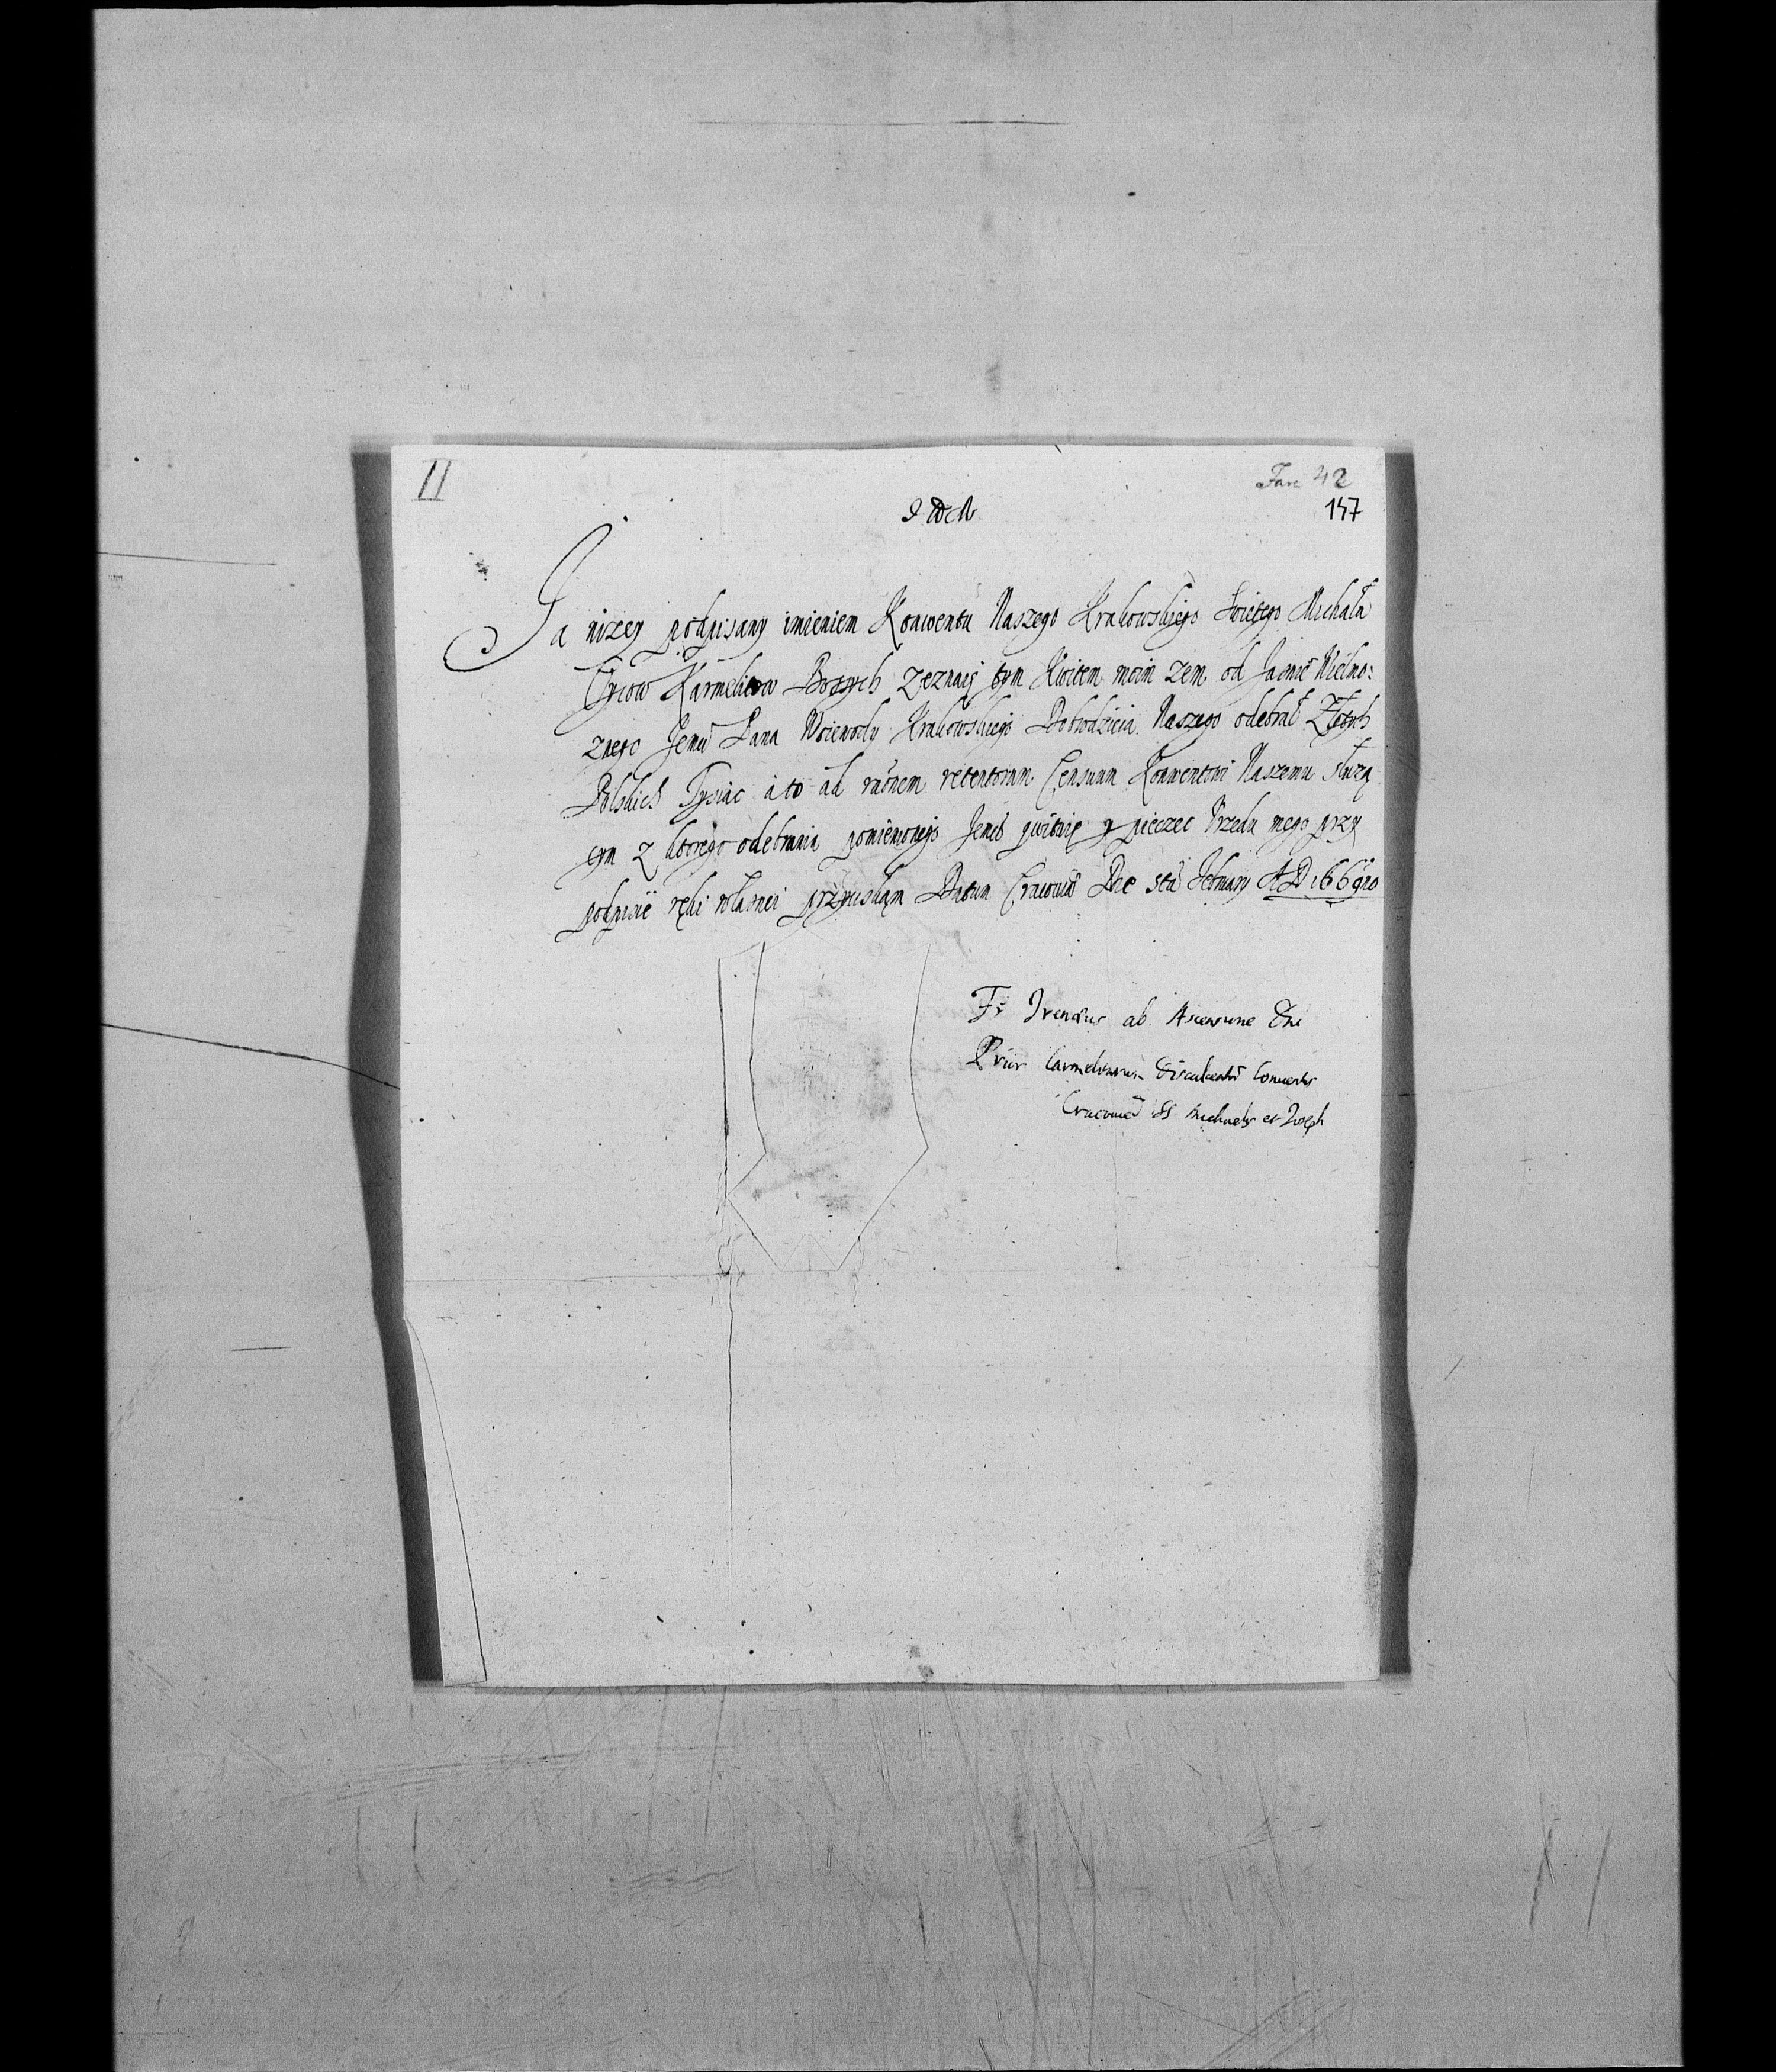 II
Fasc 42
147
Ja nizey podpisany imieniem Konwentu Naszego Krakowskiego Swiętego Michała
Oycow Karmelitow Bosych zeznaię tym Kwitem moim zem od Jasnie Wielmo:
znego Jemći Pana Woiewody Krakowskiego Dobrodzieia Naszego odebrał Złotych
Polskich Tysiąc a to ad raonem retentorum Censuum Konwentowi Naszemu słuzą
cym z ktorego odebrania pomienionego Jemći kwituię y pieczęc Urzędu mego przy
podpisie ręki własnei przyciskam Datum Cracoviæ Die 8va February A D 1669no
Fr Irenæus ab Ascensione Dni
Prior Carmelitarum Discalceator Conventus
Cracovien SS Michaelis et Joseph